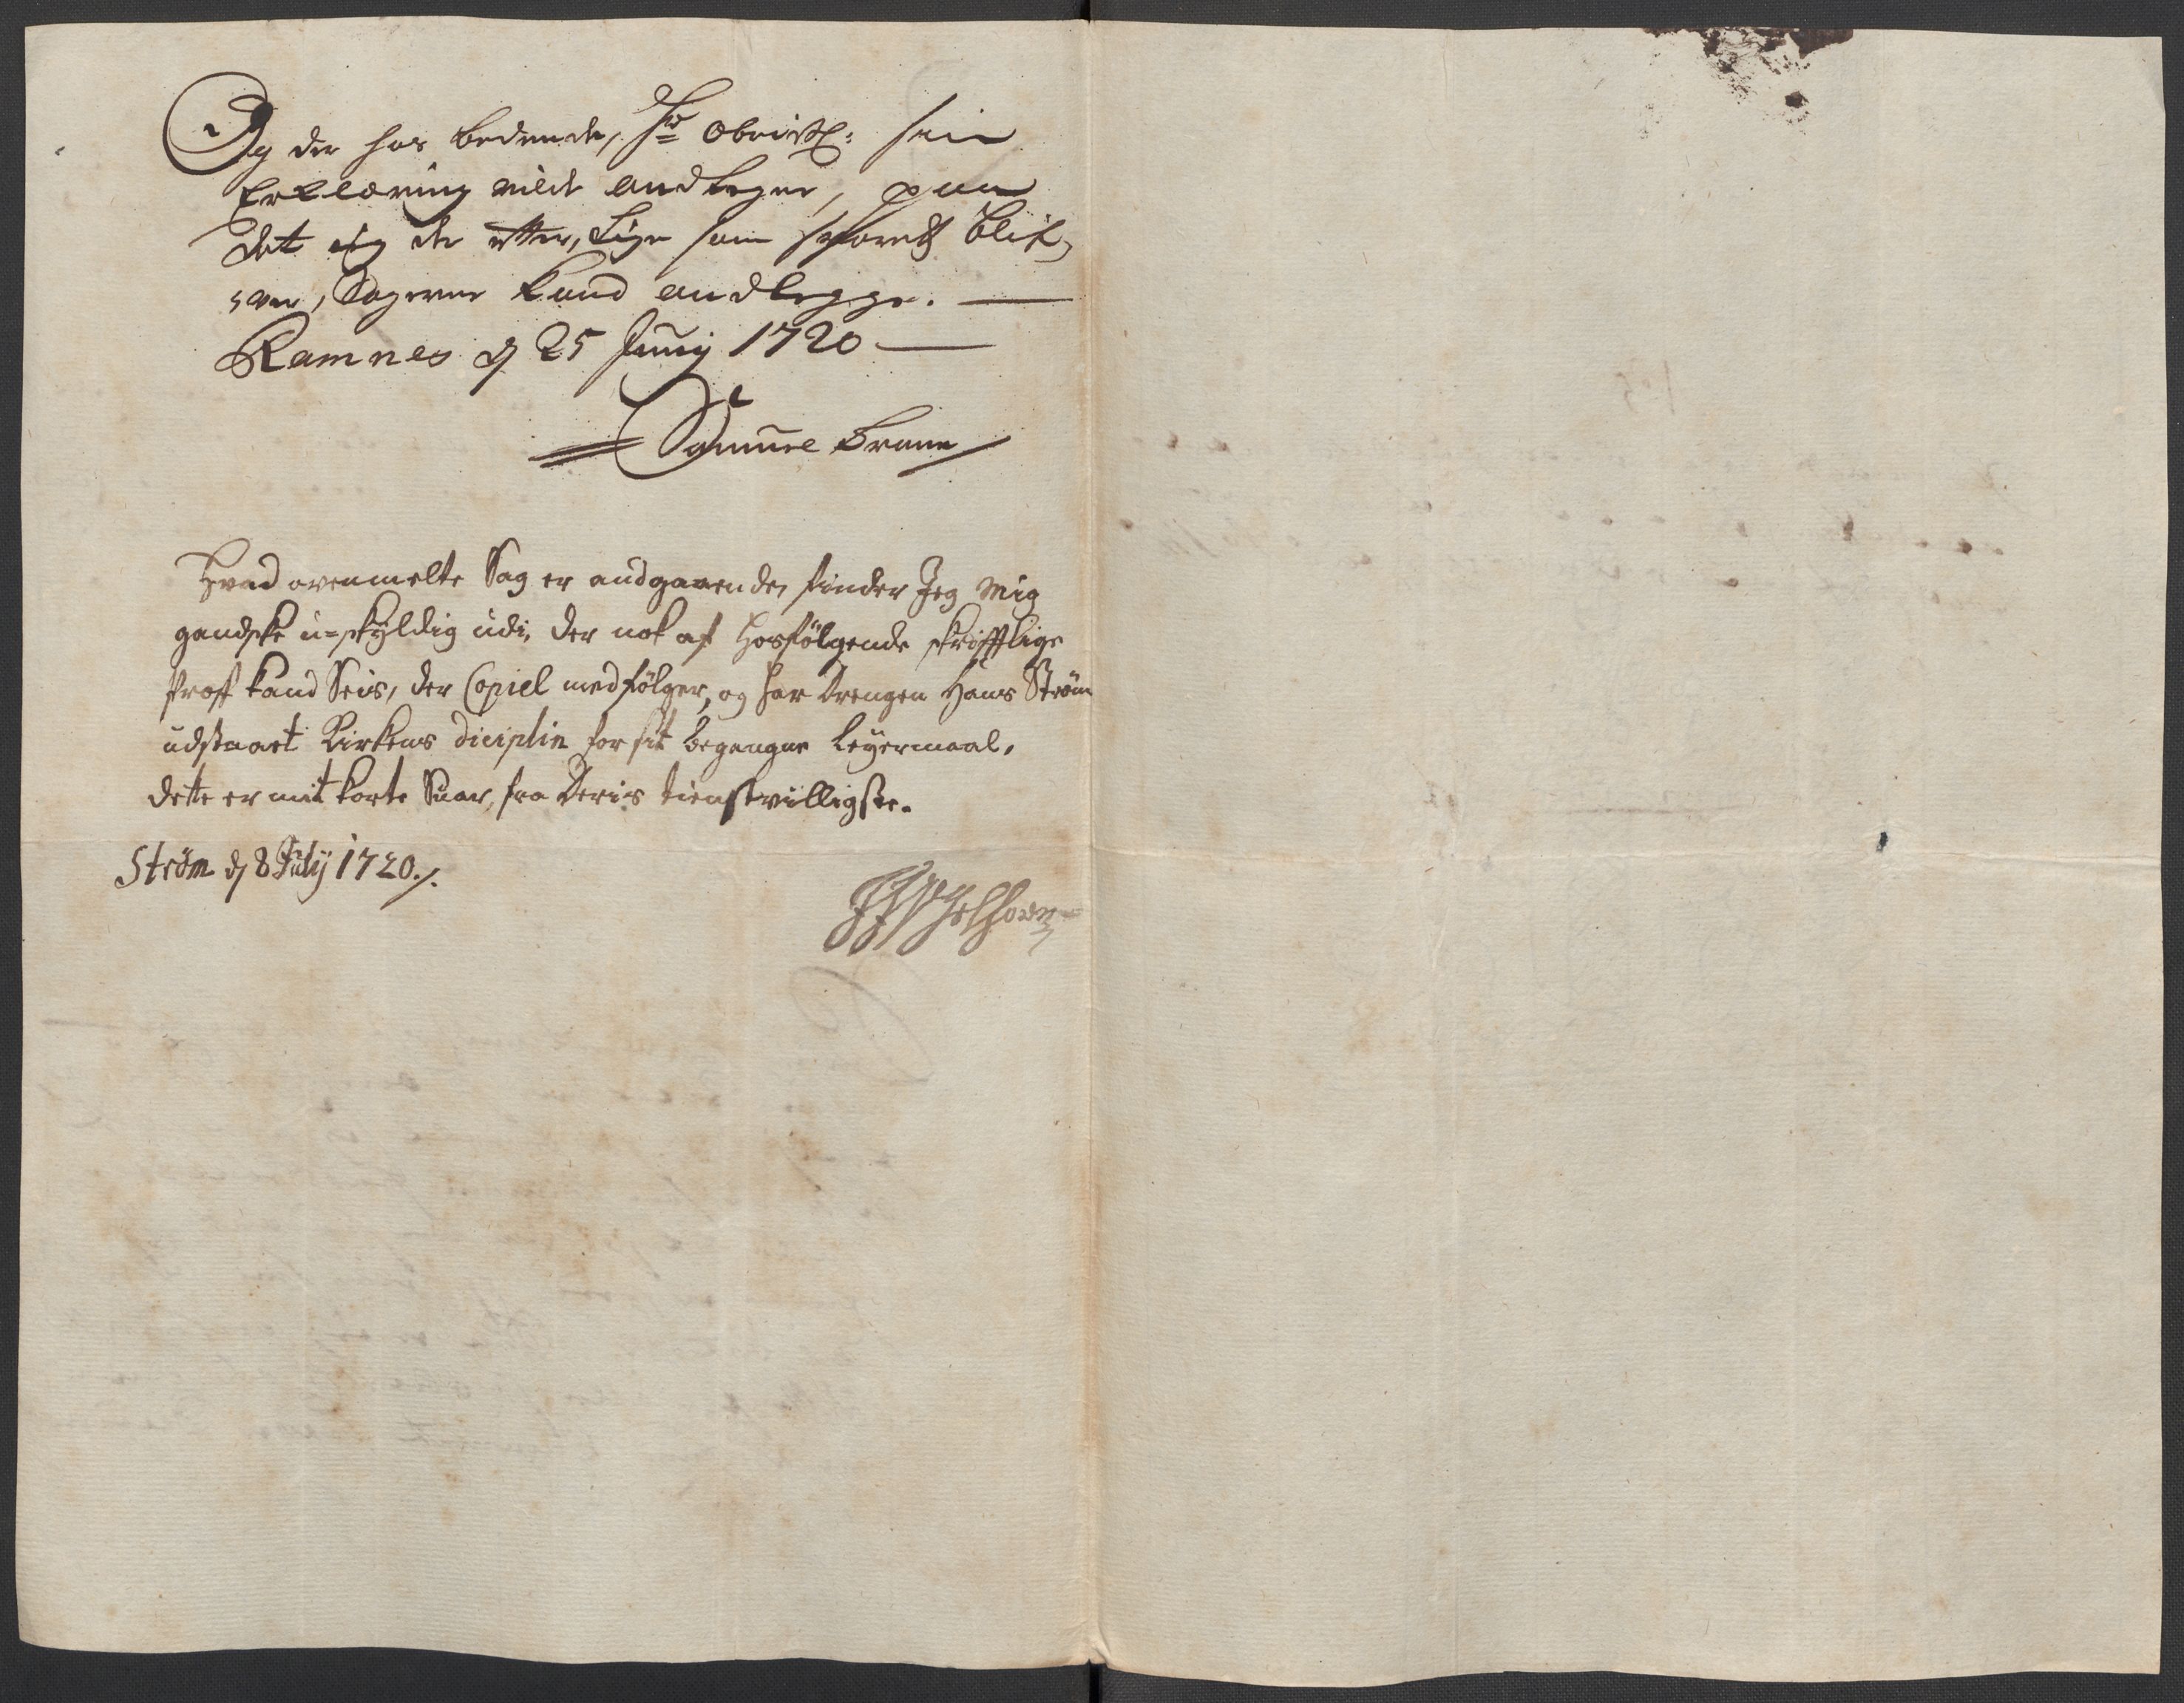 Og der hos bedende, Hr Obristl: sin
Erklæring vilde andtegne, paa
det ieg der etter, Lige som befares blif,
ver, Sagerne kand andlegge.
Ramnes d 25 Junij 1720
Samuel Brunn
Hvad ovenmelte Sag er andgaaende, finder Jeg mig
gandske u-skyldig udi, der nok af hosfølgende skrifftlige
Proff kand Seis, der Copiel medfølger, og har drengen Hans Strøm
udstaaet Kirkens diciplin for sit begangne Leyermaal,
dette er mit korte Suar, fra Deris tienstvilligste.
Strøm d 8 July 1720./.